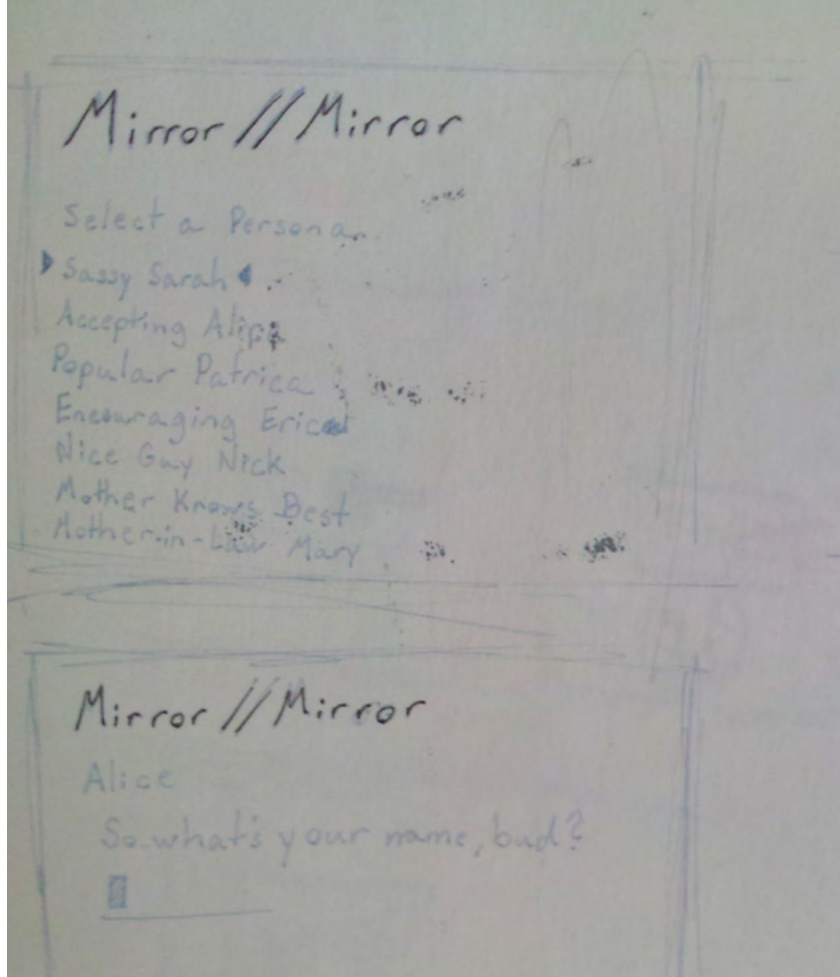 Mirror // Mirror
Select a Persona
Sassy Sarah
Accepting Alice
Popular Patrica
Encouraging Erica
Nice Guy Nick
Mother Knows Best
Mother-in-Law Mary
Mirror // Mirror
Alice
So what's your name, bud?